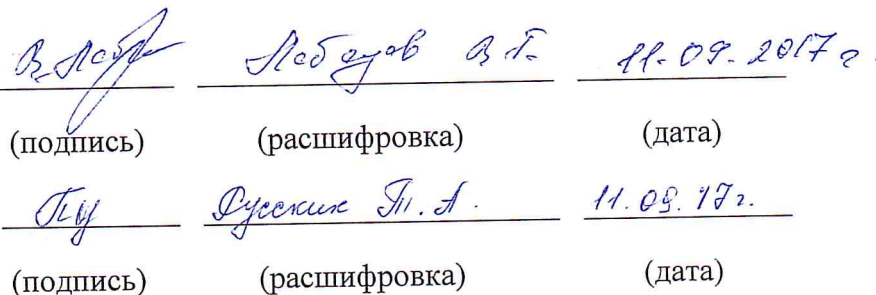 11.09.2017 г.
(подпись) (расшифровка) (дата)
Русских Т.А. 11.09.17г.
(подпись) (расшифровка) (дата)